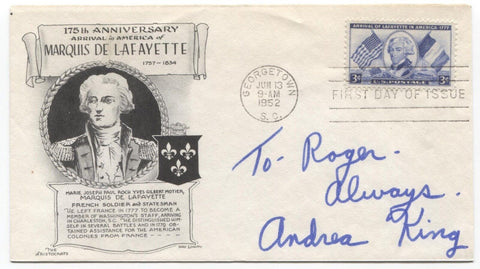 175th ANNIVERSARY
ARRIVAL in AMERICA of
MARQUIS DE LAFAYETTE
1757-1834
ARRIVAL OF LAFAYETTE IN AMERICA-1777
3¢ U.S. POSTAGE 3¢
GEORGETOWN
JUN 13
9-AM
1952
S.C.
FIRST DAY OF ISSUE
To Roger.
Always.
Andrea King
MARIE JOSEPH PAUL ROCH YVES GILBERT MOTIER,
MARQUIS DE LAFAYETTE
FRENCH SOLDIER and STATESMAN
HE LEFT FRANCE IN 1777 TO BECOME A
MEMBER OF WASHINGTON'S STAFF, ARRIVING
IN CHARLESTON, S.C. HE DISTINGUISHED HIM-
SELF IN SEVERAL BATTLES AND IN 1779 OB-
TAINED ASSISTANCE FOR THE AMERICAN
COLONIES FROM FRANCE
THE
ARISTOCRATS